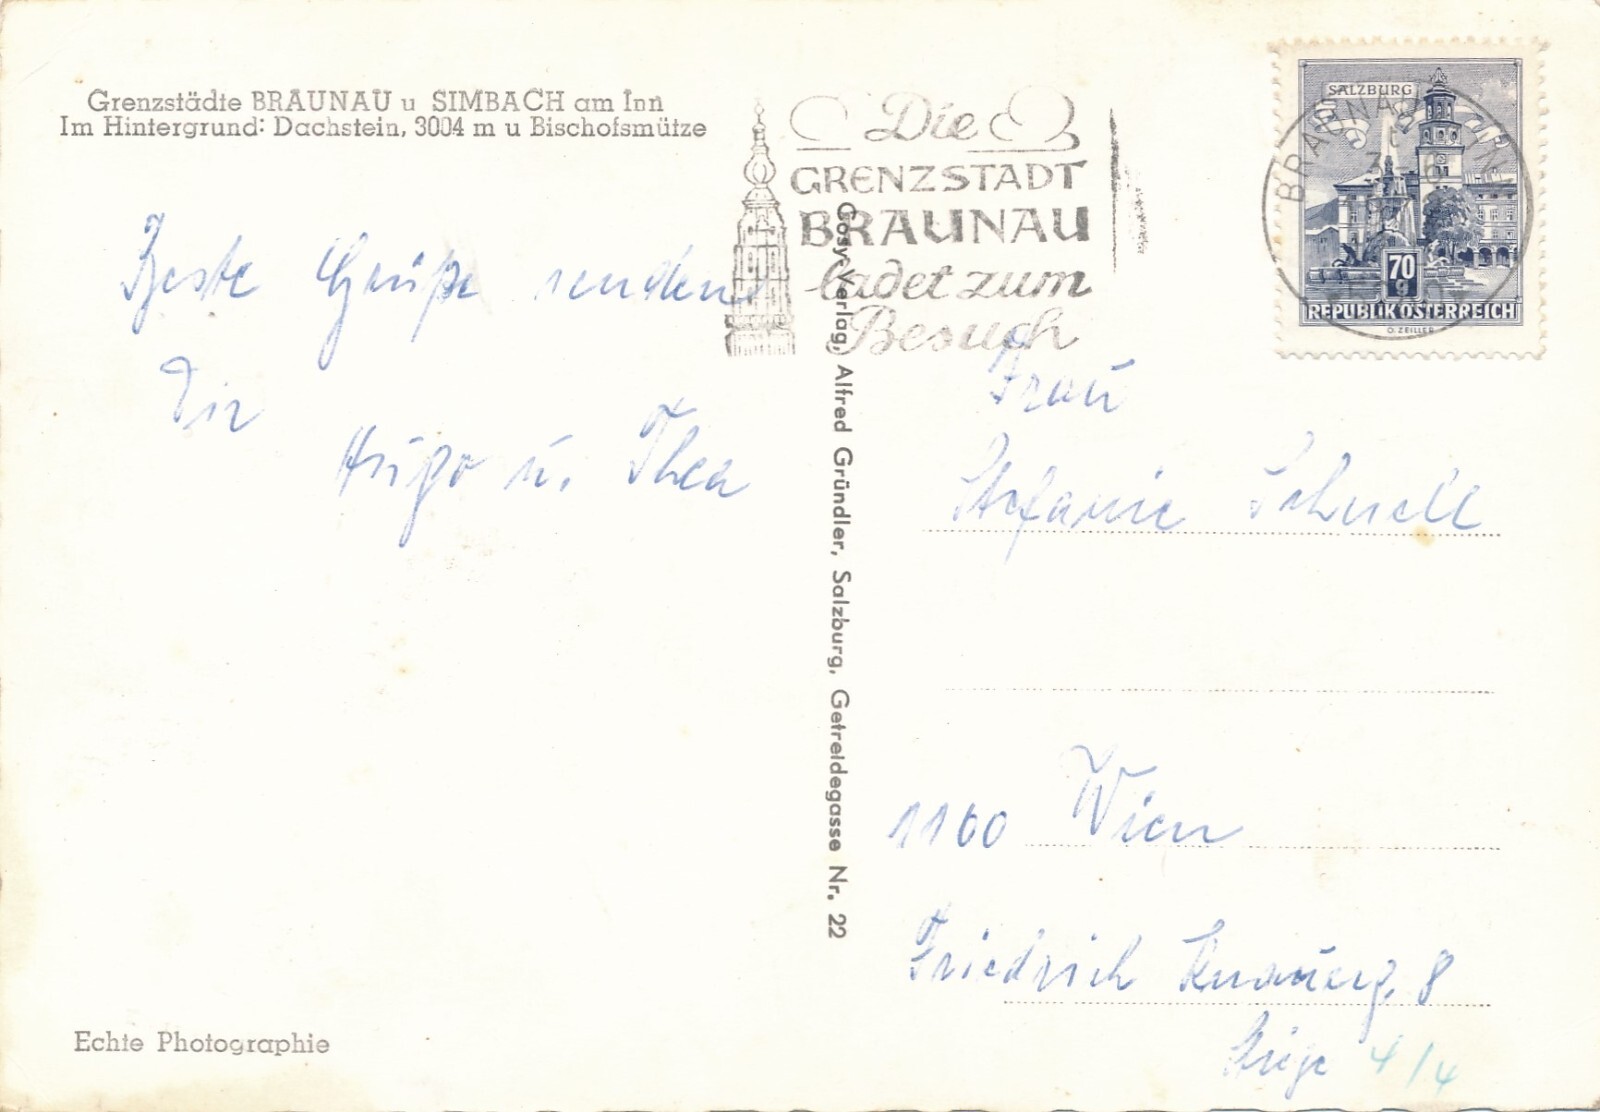 Grenzstädte BRAUNAU u SIMBACH am Inn
Im Hintergrund: Dachstein, 3004 m u Bischofsmütze
Beste Grüße senden
Dir
Hugo u. Thea
Echte Photographie
Cosy-Verlag, Alfred Gründler, Salzburg, Getreidegasse Nr. 22
Die
GRENZSTADT
BRAUNAU
ladet zum
Besuch
SALZBURG
BRAUNAU INN
70 g
REPUBLIK ÖSTERREICH
O. ZEILLER
Frau
Stefanie Schnell
1160 Wien
Friedrich Knauerg. 8
Stiege 4/4